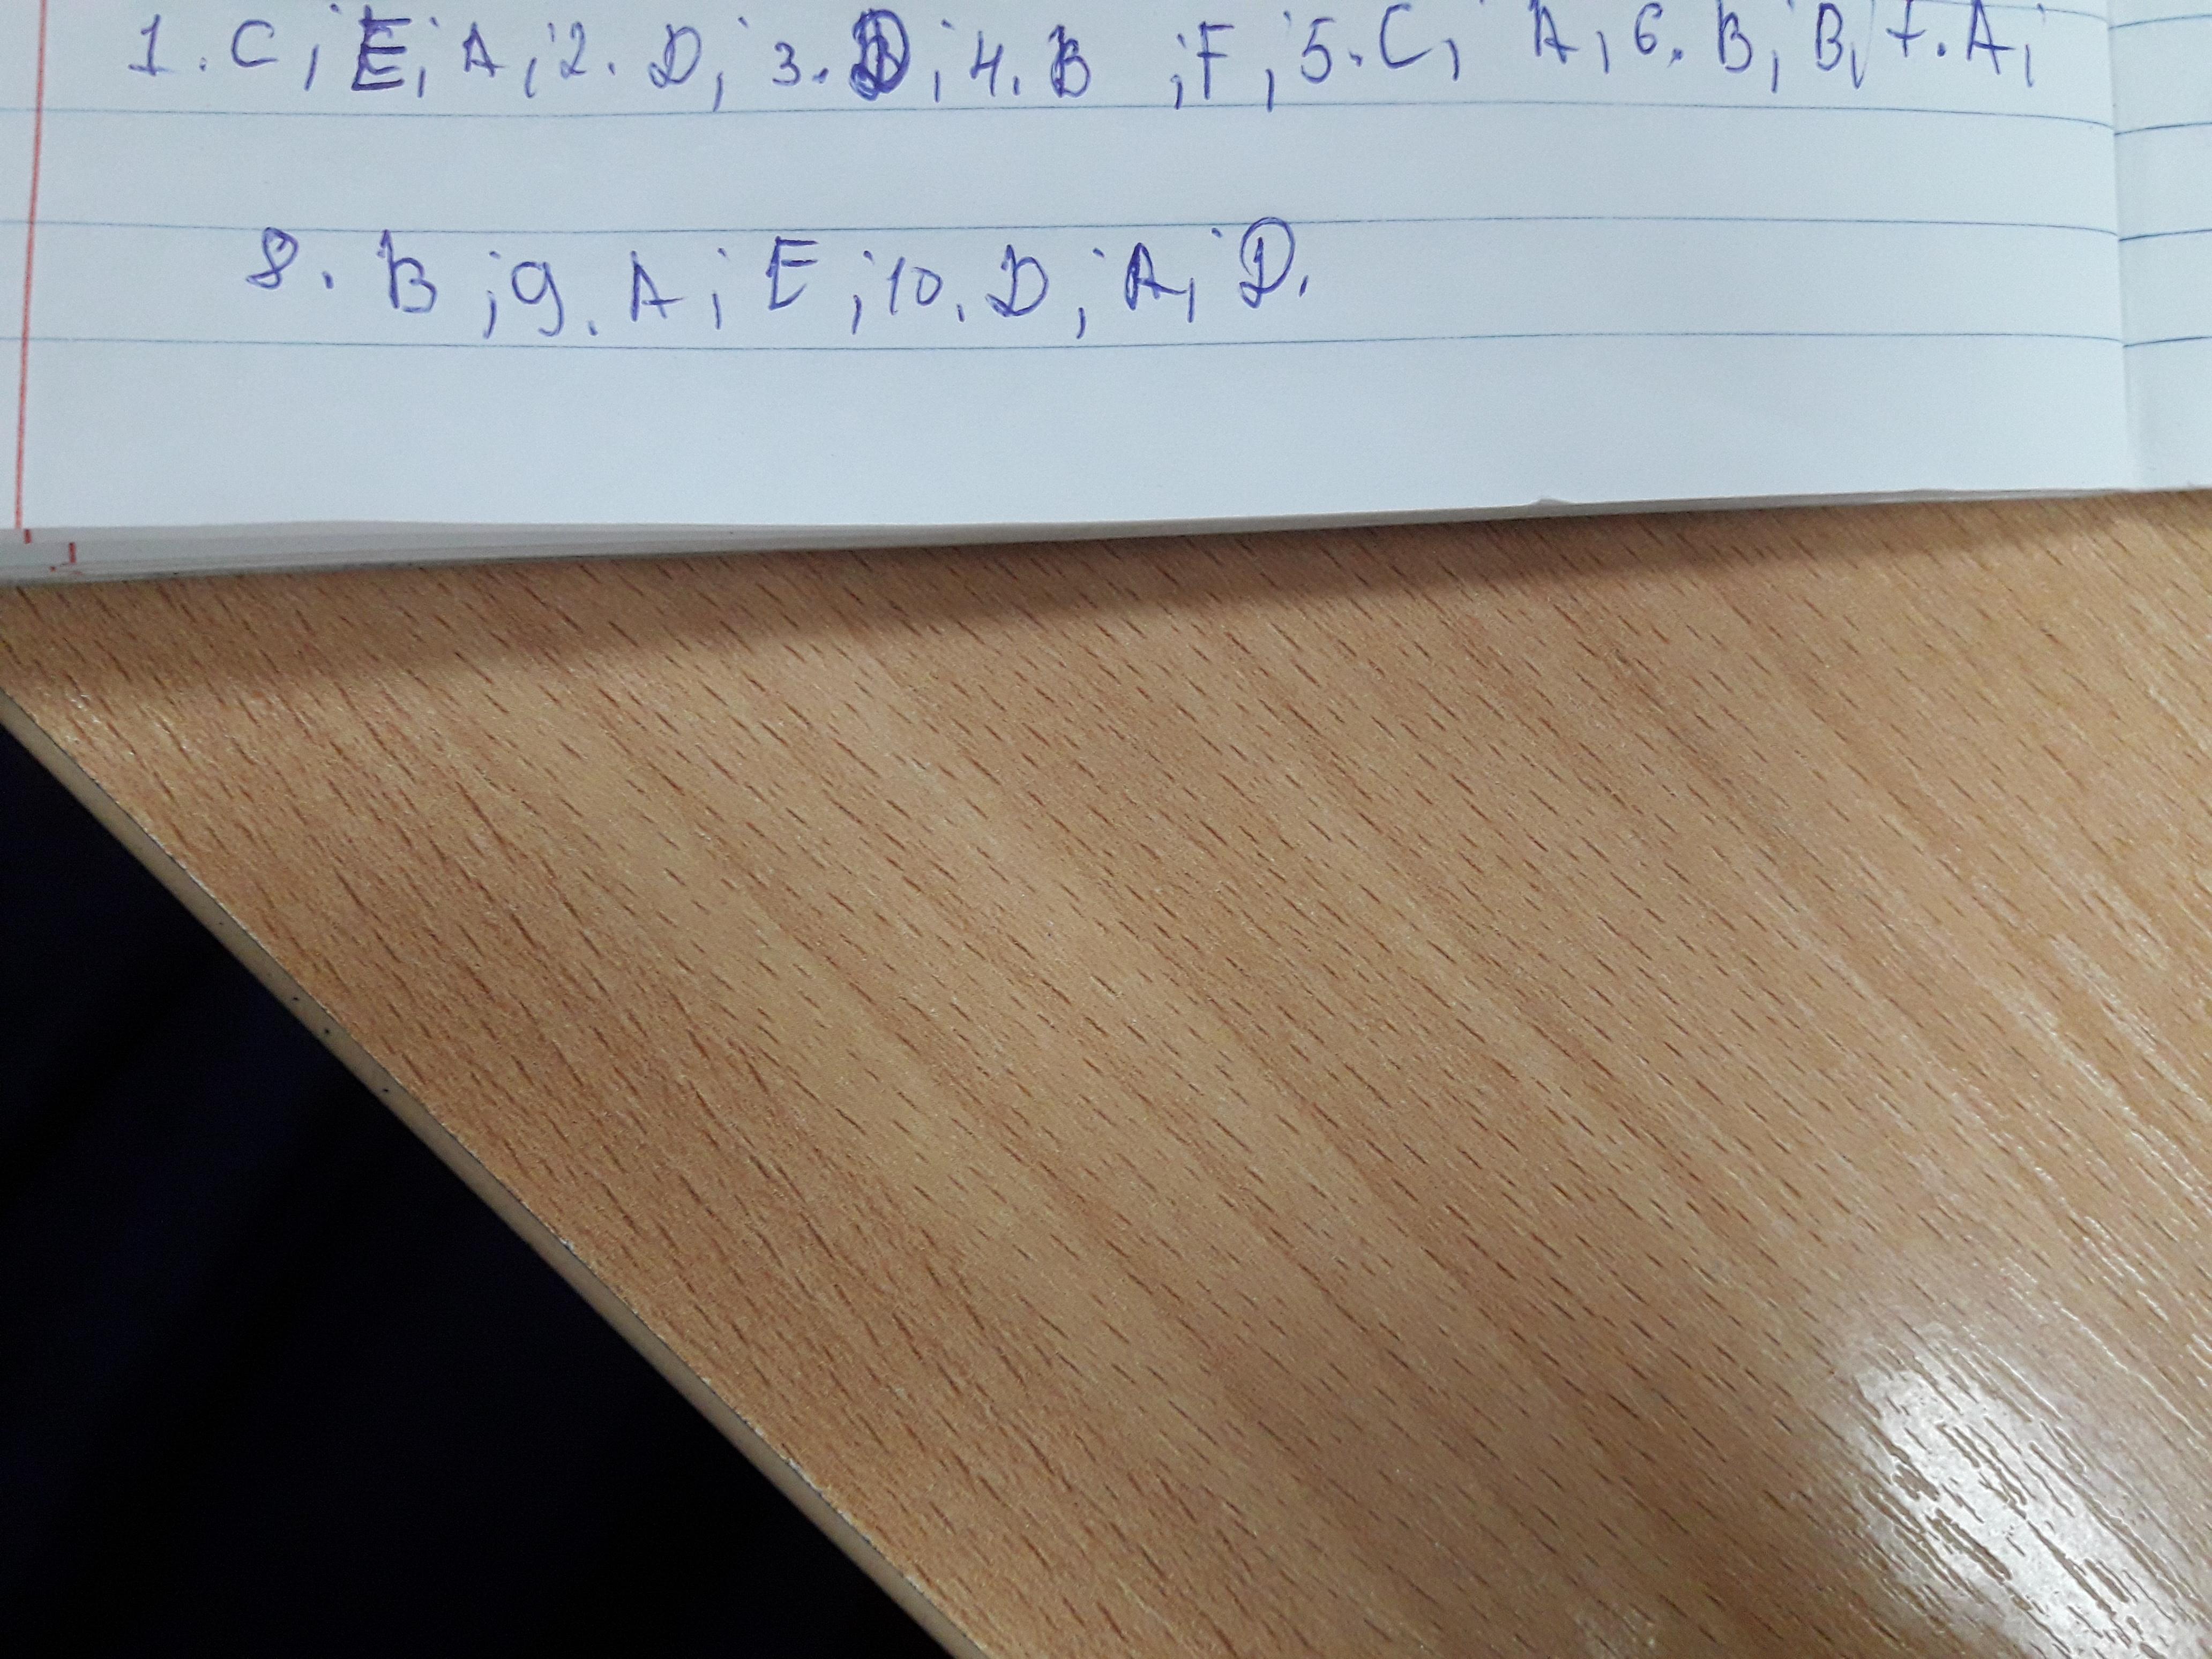 1. C; E; A; 2. D; 3. D; 4. B ; F; 5. C; A; 6. B; B; 7. A;
8. B ; 9. A; E; 10. D; A; D.